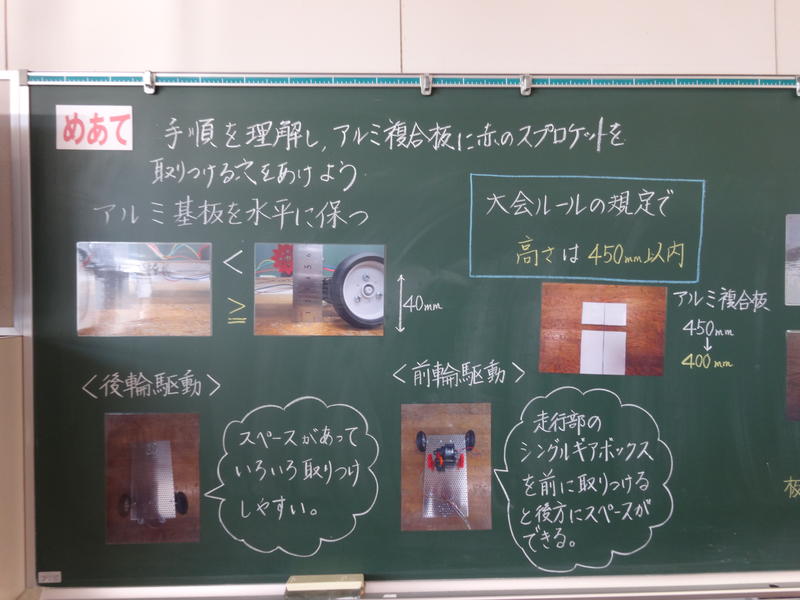 めあて
手順を理解し、アルミ複合板に赤のスプロケットを
取りつける穴をあけよう
アルミ基板を水平に保つ
大会ルールの規定で
高さは450mm以内
<
≧
40mm
アルミ複合板
450mm
↓
400mm
<後輪駆動>
スペースがあって
いろいろ取りつけ
しやすい。
<前輪駆動>
走行部の
シングルギアボックス
を前に取りつける
と後方にスペースが
できる。
板